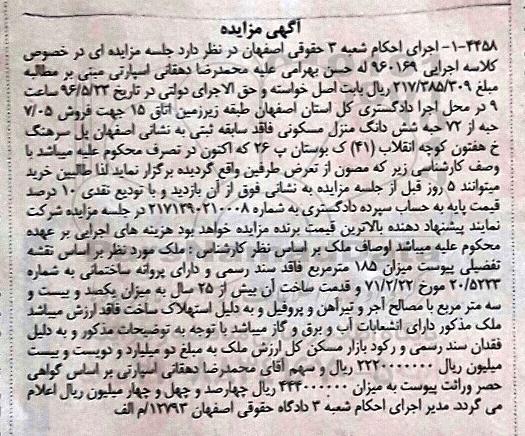 آگهی مزایده
۱-۴۴۵۸- اجرای احکام شعبه ۳ حقوقی اصفهان در نظر دارد جلسه مزایده ای در خصوص
کلاسه اجرایی ۹۶۰۱۶۹ له حسن بهرامی علیه محمدرضا دهقانی اسپارتی مبنی بر مطالبه
مبلغ ۲۱۷/۳۸۵/۳۰۹ ریال بابت اصل خواسته و حق الاجرای دولتی در تاریخ ۹۶/۵/۲۳ ساعت
۹ در محل اجرا دادگستری کل استان اصفهان طبقه زیرزمین اتاق ۱۵ جهت فروش ۷/۰۵
حبه از ۷۲ حبه شش دانگ منزل مسکونی فاقد سابقه ثبتی به نشانی اصفهان پل سرهنگ
خ هفتون کوچه انقلاب (۴۱) ک بوستان پ ۲۶ که اکنون در تصرف محکوم علیه میباشد با
وصف کارشناسی زیر که مصون از تعرض طرفین واقع گردیده برگزار نماید لذا طالبین خرید
میتوانند ۵ روز قبل از جلسه مزایده به نشانی فوق از آن بازدید و با تودیع نقدی ۱۰ درصد
قیمت پایه به حساب سپرده دادگستری به شماره ۲۱۷۱۳۹۰۲۱۰۰۰۸ در جلسه مزایده شرکت
نمایند پیشنهاد دهنده بالاترین قیمت برنده مزایده خواهد بود هزینه های اجرایی بر عهده
محکوم علیه میباشد اوصاف ملک بر اساس نظر کارشناس : ملک مورد نظر بر اساس نقشه
تفصیلی پیوست میزان ۱۸۵ مترمربع فاقد سند رسمی و دارای پروانه ساختمانی به شماره
۲۰/۵۲۳۳ مورخ ۷۱/۲/۲۲ و قدمت ساخت آن بیش از ۲۵ سال به میزان یکصد و بیست و
سه متر مربع با مصالح آجر و تیرآهن و پروفیل و به دلیل استهلاک ساخت فاقد ارزش میباشد
ملک مذکور دارای انشعابات آب و برق و گاز میباشد با توجه به توضیحات مذکور و به دلیل
فقدان سند رسمی و رکود بازار مسکن کل ارزش ملک به مبلغ دو میلیارد و دویست و بیست
میلیون ریال ۲۲۲۰۰۰۰۰۰۰ ریال و سهم آقای محمدرضا دهقانی اسپارتی بر اساس گواهی
حصر وراثت پیوست به میزان ۴۴۴۰۰۰۰۰۰ ریال چهارصد و چهل و چهار میلیون ریال اعلام
می گردد. مدیر اجرای احکام شعبه ۳ دادگاه حقوقی اصفهان ۱۲۷۹۳/م الف